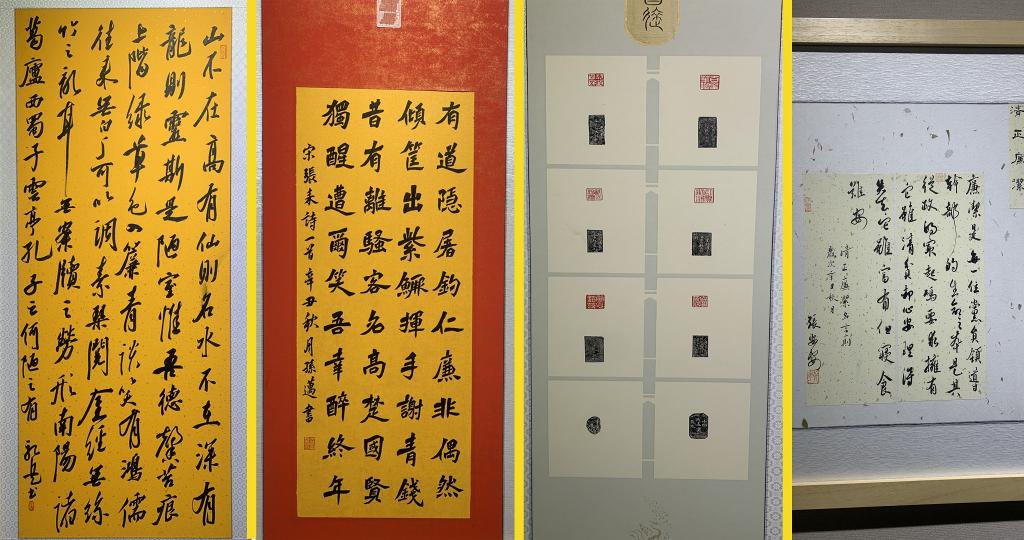 山不在高有仙則名水不在深有
龍則靈斯是陋室惟吾德馨苔痕
上階綠草色入簾青談笑有鴻儒
往來無白丁可以調素琴閱金經無絲
竹之亂耳無案牘之勞形南陽諸
葛廬西蜀子雲亭孔子云何陋之有
有道隱屠釣仁廉非偶然
傾筐出紫鱖揮手謝青錢
昔有離騷客名高楚國賢
獨醒遭爾笑吾幸醉終年
宋張耒詩一首辛丑秋月孫邁書
清正廉潔
廉潔是每一任黨員領導
幹部的生命之本是其
從政的最起碼要求擁有
它雖清貧卻心安理得
失去它雖富有但寢食
難安
清正廉潔名言一則
歲次辛丑秋月
張